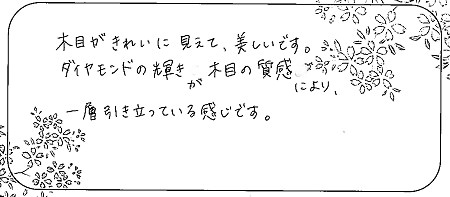 木目がきれいに見えて、美しいです。
ダイヤモンドの輝きが木目の質感により、
一層引き立っている感じです。